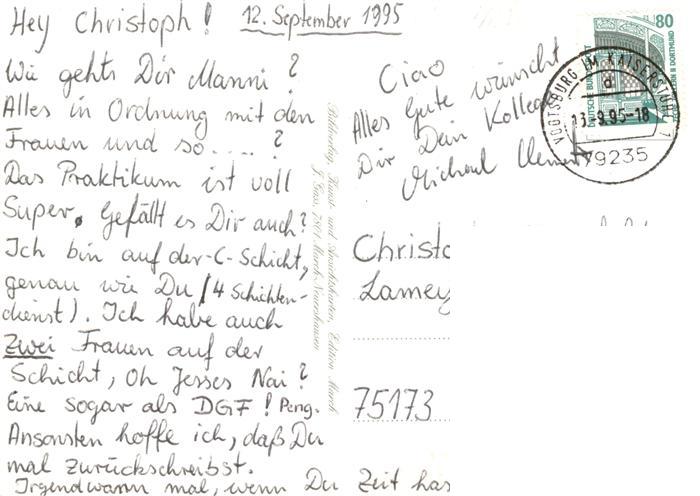 Hey Christoph! 12. September 1995
Wie gehts Dir Manni?
Alles in Ordnung mit den
Frauen und so....?
Das Praktikum ist voll
Super. Gefällt es Dir auch?
Ich bin auf der-C-Schicht,
genau wie Du (4 Schichten-
dienst). Ich habe auch
zwei Frauen auf der
Schicht, Oh Jesses Nai?
Eine sogar als DGF! Peng.
Ansonsten hoffe ich, daß Du
mal zurückschreibst.
Irgendwann mal, wenn Du Zeit has
Ciao
Alles Gute wünscht
Dir Dein Kollege
Michael
Christo
Lamey
75173
80
DEUTSCHE BUNDESPOST
VOGTSBURG IM KAISERSTUHL 1
d
13.9.95-18
79235